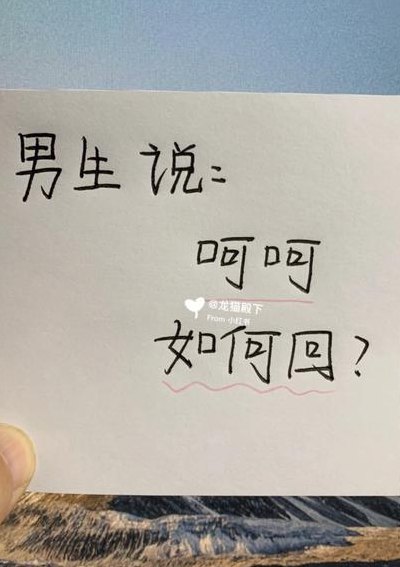 男生说：
呵呵
@龙猫殿下
From 小红书
如何回？